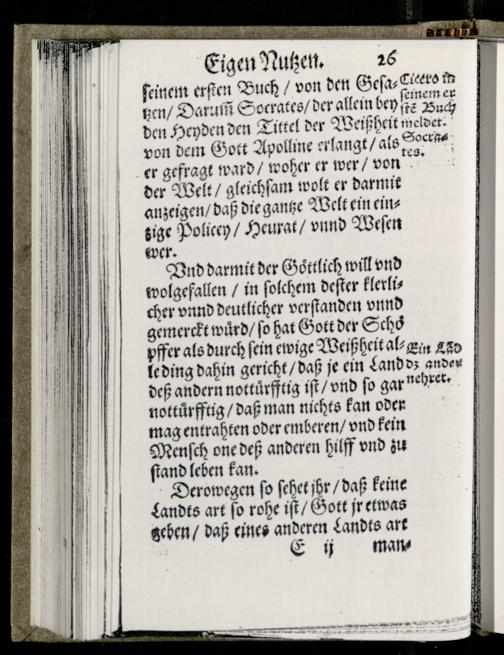 Eigen Nutzen. 26
seinem ersten Buch / von den Gesa-
tzen / Darum̃ Socrates / der allein bey
den Heyden den Tittel der Weißheit
von dem Gott Apolline erlangt / als
er gefragt ward / woher er wer / von
der Welt / gleichsam wolt er darmit
anzeigen / daß die gantze Welt ein ein-
tzige Policey / Heurat / vnnd Wesen
wer.
Cicero in
seinem er
stẽ Buch
meldet.
Socra-
tes.
Vnd darmit der Göttlich will vnd
wolgefallen / in solchem dester klerli-
cher vnnd deutlicher verstanden vnnd
gemerckt würd / so hat Gott der Schö
pffer als durch sein ewige Weißheit al-
le ding dahin gericht / daß je ein Land
deß andern notturfftig ist / vnd so gar
notturfftig / daß man nichts kan oder
mag entrahten oder emberen / vnd kein
Mensch one deß anderen hilff vnd zu
stand leben kan.
Ein Lãd
dz ander
nehret.
Derowegen so sehet jhr / daß keine
Landts art so rohe ist / Gott jr etwas
geben / daß eines anderen Landts art
E ij man-